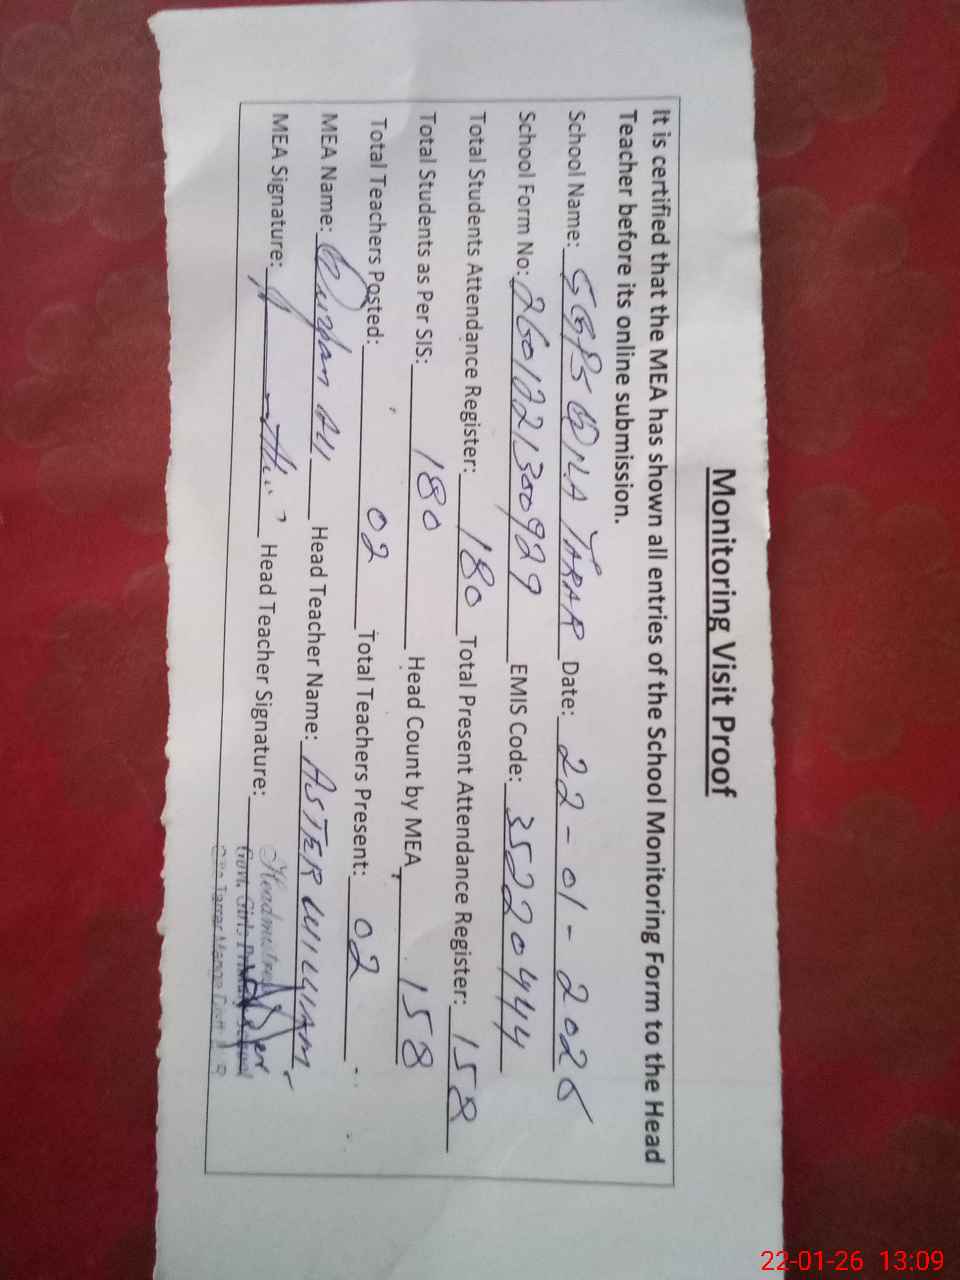 Monitoring Visit Proof
It is certified that the MEA has shown all entries of the School Monitoring Form to the Head
Teacher before its online submission.
School Name: SGPS QILA TARAR Date: 22-01-2026
School Form No: 2601221300929 EMIS Code: 35220444
Total Students Attendance Register: 180 Total Present Attendance Register: 158
Total Students as Per SIS: 180 Head Count by MEA 158
Total Teachers Posted: 02 Total Teachers Present: 02
MEA Name: Ali Head Teacher Name: ASTER WILLIAM
MEA Signature: Head Teacher Signature:
Headmistress
Govt. Girls Primary School
22-01-26 13:09